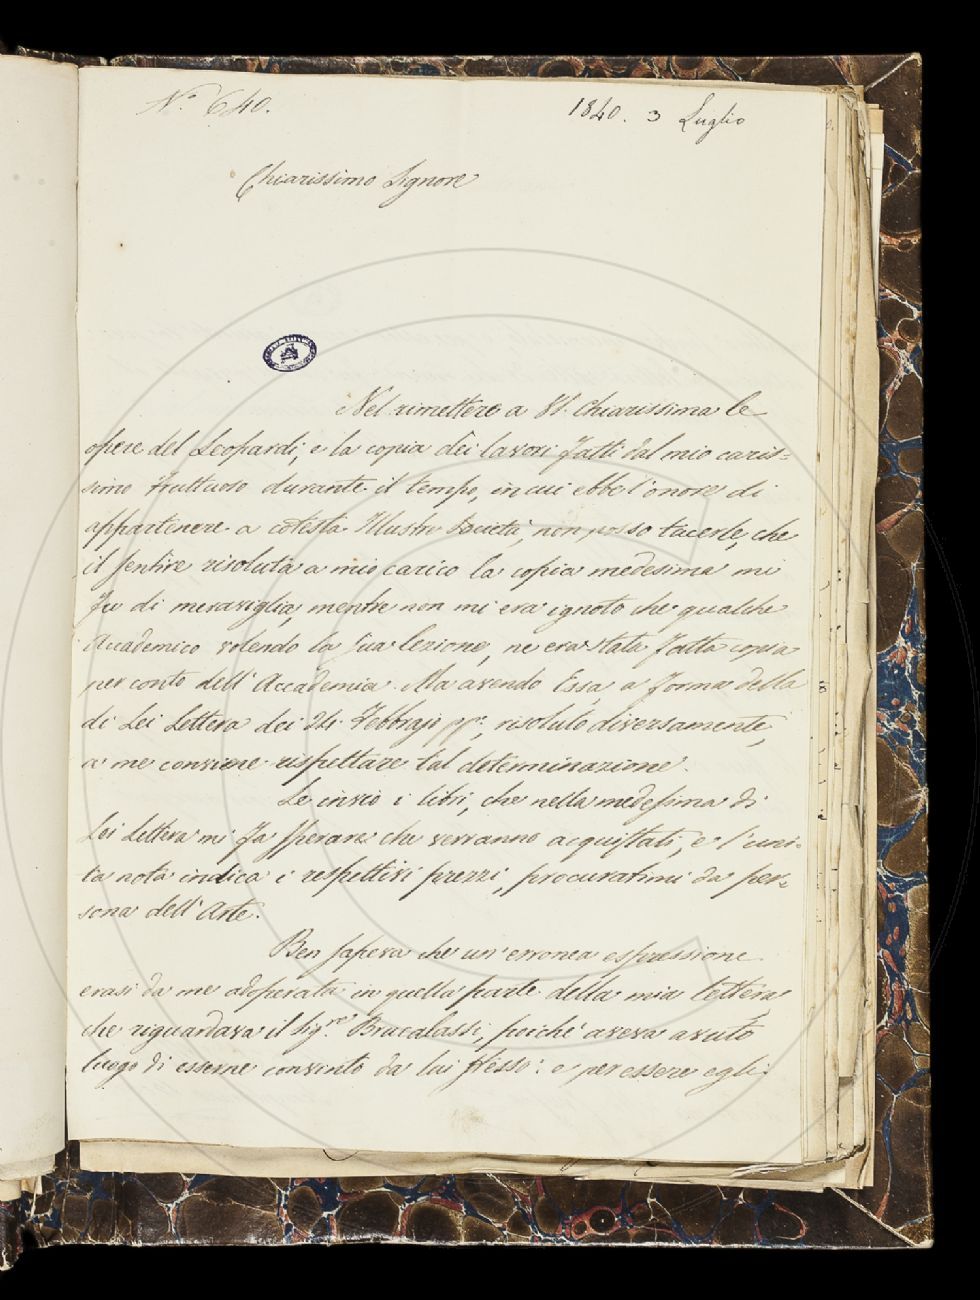 N.° 640.
1840. 3 Luglio
Chiarissimo Signore
Nel rimettere a V.S. Chiarissima le
opere del Leopardi, e la copia dei lavori fatti dal mio caris-
simo Fruttuoso durante il tempo, in cui ebbe l'onore di
appartenere a cotesta Illustre Società, non posso tacerle, che
il sentire risoluta a mio carico la copia medesima mi
fu di meraviglia, mentre non mi era ignoto che qualche
Accademico volendo la sua lezione, ne era stata fatta copia
per conto dell'Accademia. Ma avendo Essa a forma della
di Lei Lettera dei 24. Febbrajo pp.°, risoluto diversamente,
a me conviene rispettare tal determinazione.
Le invio i libri, che nella medesima di
Lei Lettera mi fa sperare che verranno acquistati, e l'uni-
ta nota indica i respettivi prezzi, procuratimi da per-
sona dell'Arte.
Ben sapeva che un'erronea espressione
erasi da me adoperata in quella parte della mia lettera
che riguardava il Sig.re Bracalassi, poiché aveva avuto
luogo di esserne convinto da lui stesso: e per essere egli